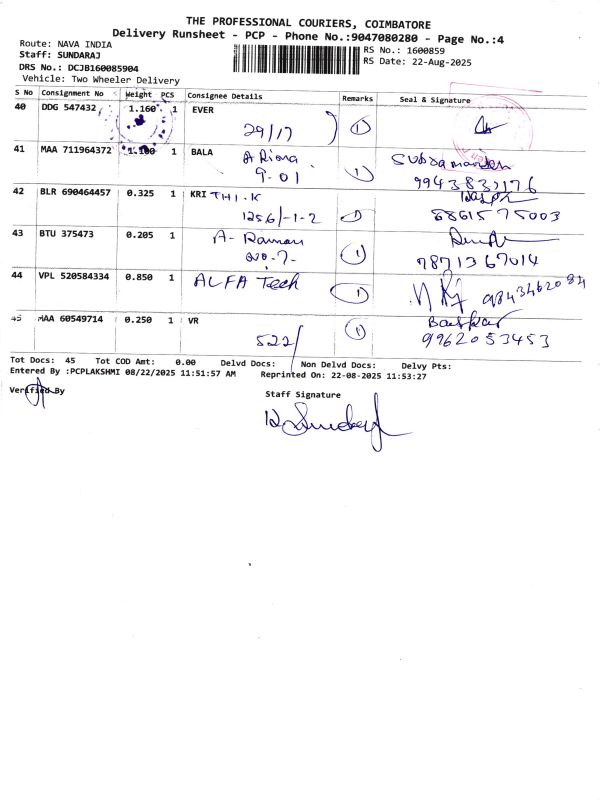 THE PROFESSIONAL COURIERS, COIMBATORE
Delivery Runsheet - PCP - Phone No.:9047080280 - Page No.:4
Route: NAVA INDIA
RS No.: 1600859
Staff: SUNDARAJ
RS Date: 22-Aug-2025
DRS No.: DCJB160085904
Vehicle: Two Wheeler Delivery
S No Consignment No Weight PCS Consignee Details Remarks Seal & Signature
40 DDG 547432 1.160 1 EVER
29/17 1
41 MAA 711964372 1.100 1 BALA
9-01 1 9943832176
42 BLR 690464457 0.325 1 KRI THI.K
1256/-1-2 1 8861575003
43 BTU 375473 0.205 1 A- Raman
No.7- 1 9871367014
44 VPL 520584334 0.850 1 ALFA Tech 1 9843462084
45 MAA 60549714 0.250 1 VR 1 Baskar
522/ 9962053453
Tot Docs: 45 Tot COD Amt: 0.00 Delvd Docs: Non Delvd Docs: Delvy Pts:
Entered By :PCPLAKSHMI 08/22/2025 11:51:57 AM Reprinted On: 22-08-2025 11:53:27
Verified By
Staff Signature